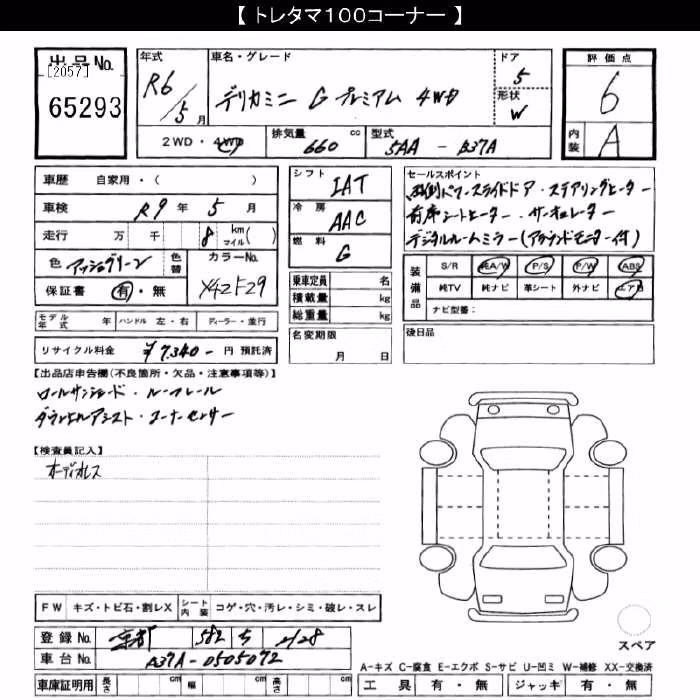 【 トレタマ100コーナー 】
出品No. [2057] 65293
年式 R6/5月
車名・グレード デリカミニ G プレミアム 4WD
ドア 5
形状 W
2WD・4WD 排気量 660 cc 型式 5AA - B37A
評価点 6
内装 A
車歴 自家用・( )
車検 R9年 5月
走行 万 千 8 km マイル( )
色 アッシュグリーン 色替 カラーNo. X42F29
保証書 有・無
モデル年式 年 ハンドル 左・右 ディーラー・並行
リサイクル料金 ¥7,340- 円 預託済
シフト IAT
冷房 AAC
燃料 G
乗車定員 名
積載量 kg
総重量 kg
名変期限 月 日
セールスポイント
両側パワースライドドア・ステアリングヒーター
前席シートヒーター・サーキュレーター
デジタルルームミラー(アラウンドモニター付)
装備品 S/R 純A/W P/S P/W ABS
純TV 純ナビ 革シート 外ナビ エアB
ナビ型番:
後日品
【出品店申告欄(不良箇所・欠品・注意事項等)】
ロールサンシェード・ルーフレール
ダウンヒルアシスト・コーナーセンサー
【検査員記入】
オーディオレス
FW キズ・トビ石・割レX シート内装 コゲ・穴・汚レ・シミ・破レ・スレ
登録No. 京都 582
車台No. B37A-0505072
車庫証明用 長さ cm 幅 cm 高さ cm
スペア
A-キズ C-腐食 E-エクボ S-サビ U-凹ミ W-補修 XX-交換済
工具 有・無 ジャッキ 有・無